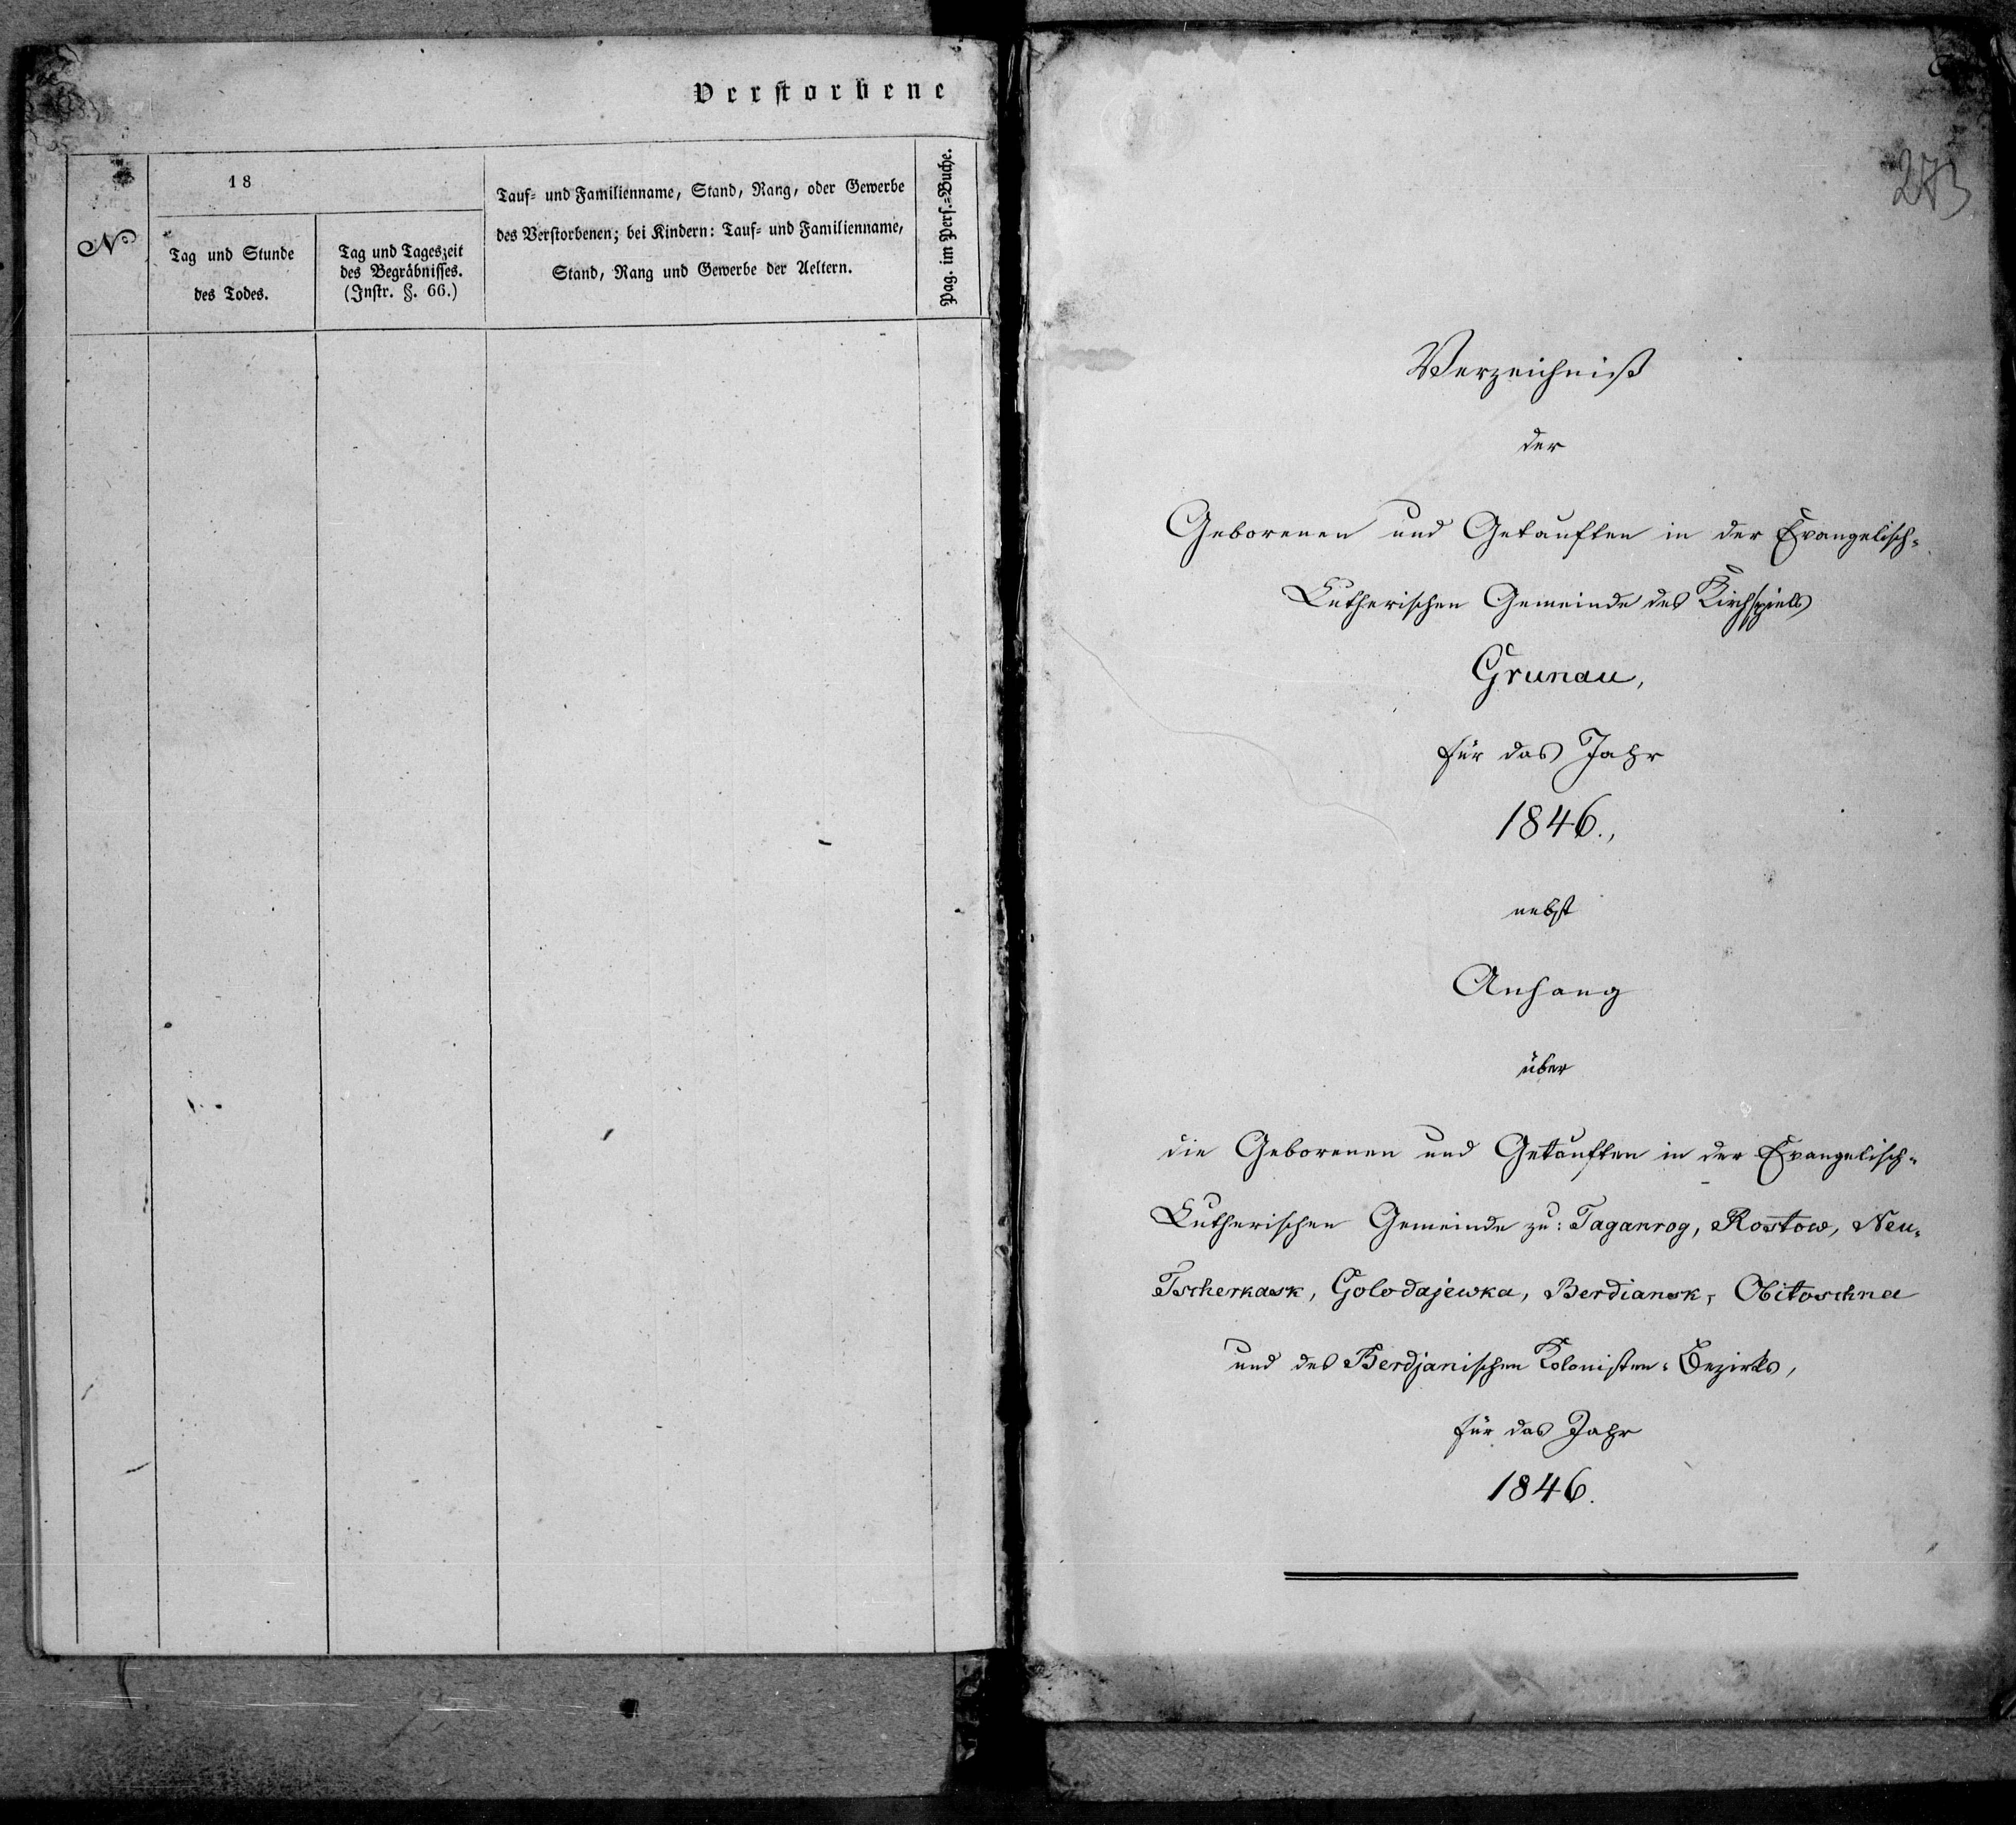 Verstorbene
N°
18
Tag und Stunde
des Todes.
Tag und Tageszeit
des Begräbnisses.
(Instr. §. 66.)
Tauf- und Familienname, Stand, Rang, oder Gewerbe
des Verstorbenen; bei Kindern: Tauf- und Familienname,
Stand, Rang und Gewerbe der Aeltern.
Pag. im Pers.-Buche.
Verzeichniß
der
Geborenen und Getauften in der Evangelisch-
Lutherischen Gemeinde des Kirchspiels
Grunau,
für das Jahr
1846.,
nebst
Anhang
über
die Geborenen und Getauften in der Evangelisch-
Lutherischen Gemeinde zu: Taganrog, Rostow, Neu-
Tscherkask, Golodajewka, Berdiansk, Obitoschna
und des Berdjanischen Kolonisten-Bezirks,
für das Jahr
1846.